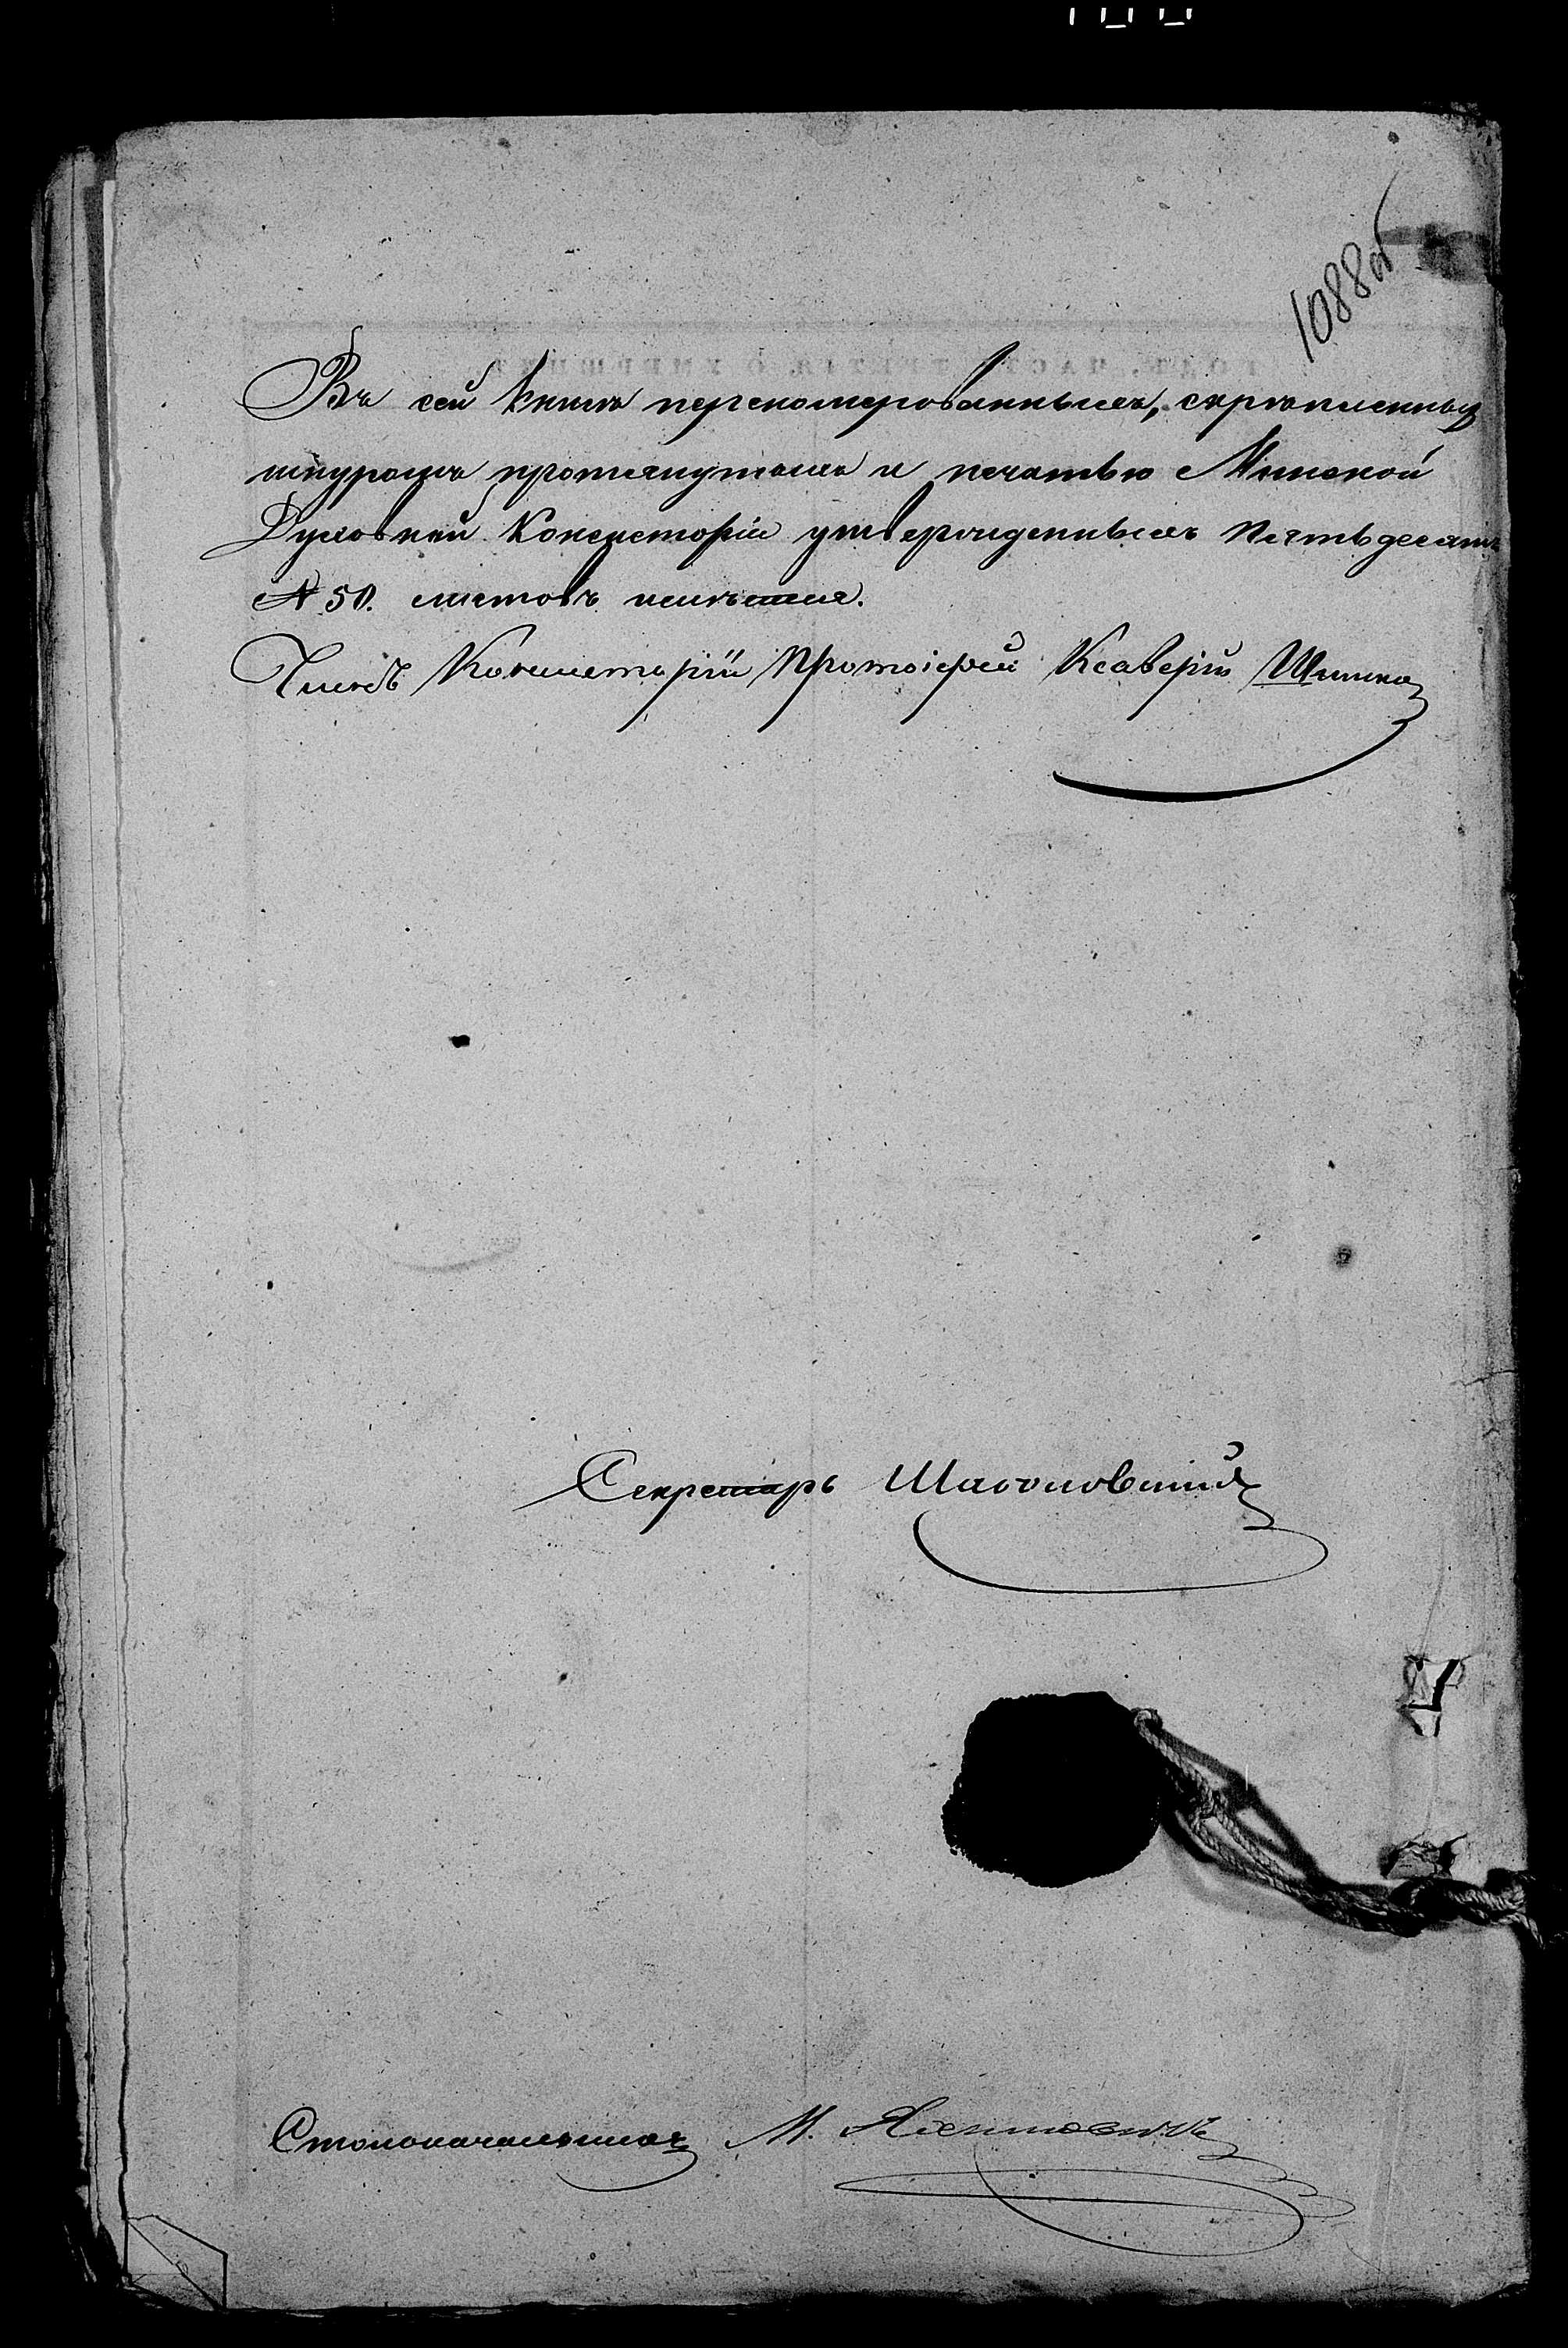 1088 об
Въ сей книгѣ переномерованныхъ, скрѣпленныхъ
шнуромъ протянутыхъ и печатью Минской
Духовной Консисторіи утвержденныхъ пятьдесятъ
№ 50. листовъ имѣется.
Членъ Консисторіи Протоіерей Ксаверій
Секретарь
Столоначальникъ М.